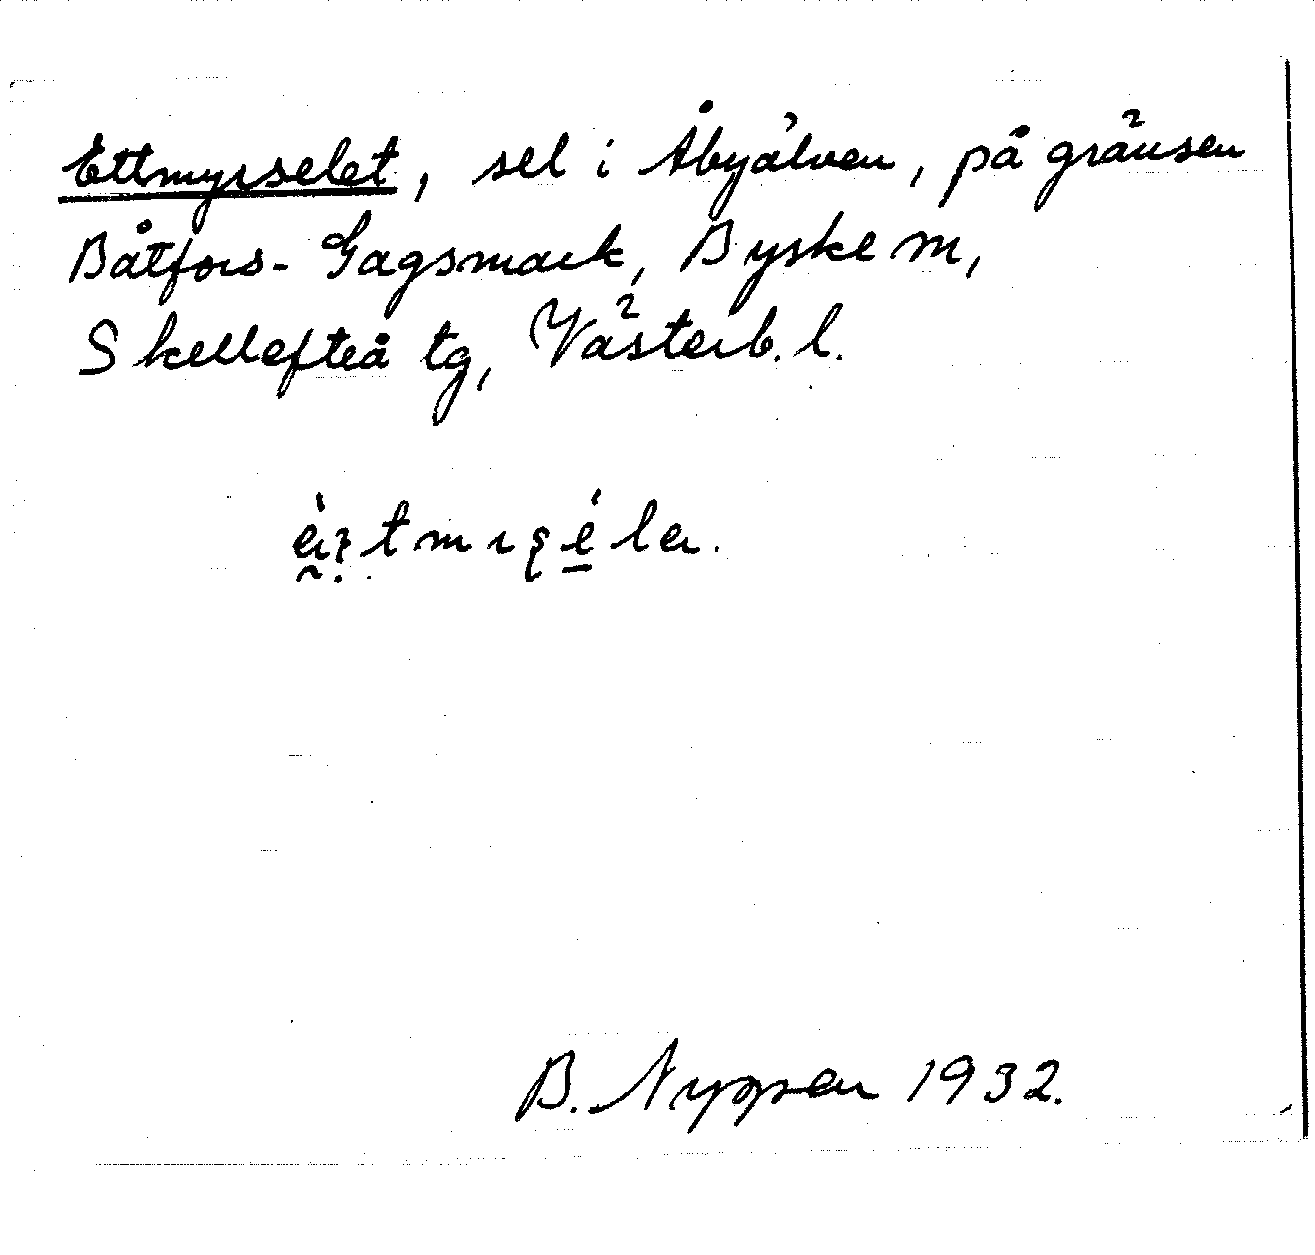 Ettmyrselet, sel i Åbyälven, på gränsen
Båtfors-Gagsmark, Byske m,
Skellefteå tg, Västerb. l.
B. Nyman 1932.